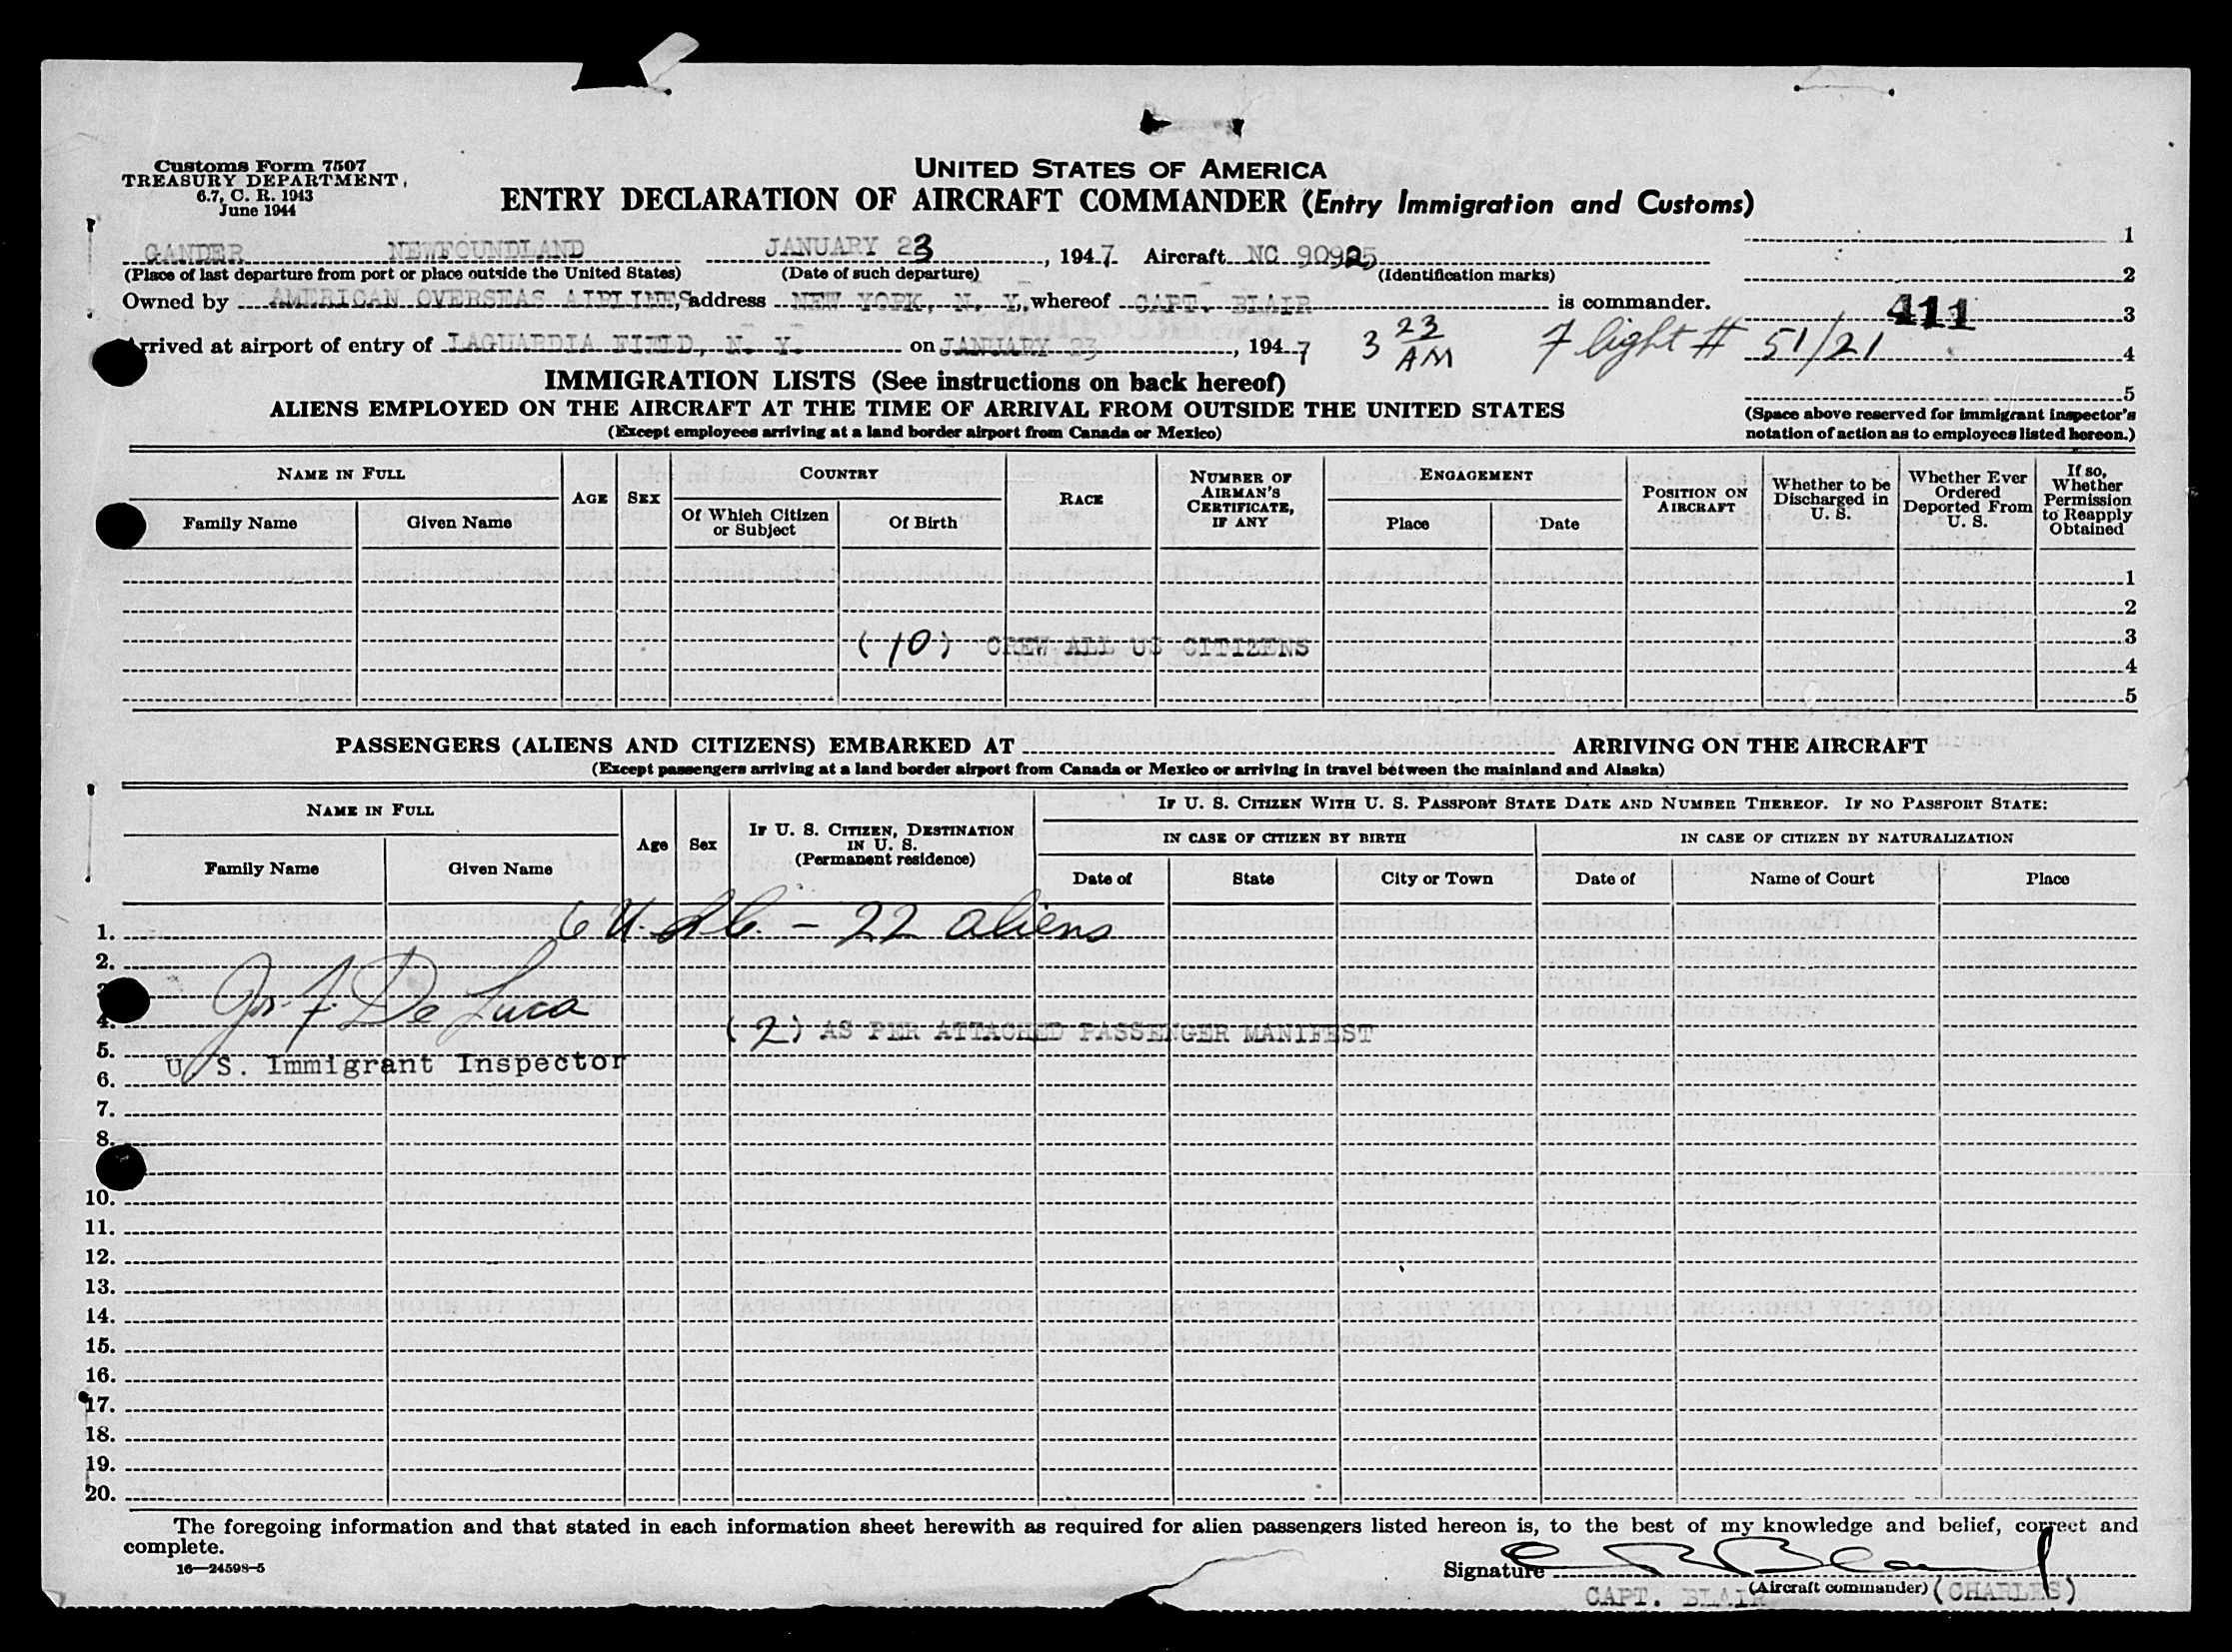 Customs Form 7507
TREASURY DEPARTMENT
6.7, C. R. 1943
June 1944
UNITED STATES OF AMERICA
ENTRY DECLARATION OF AIRCRAFT COMMANDER (Entry Immigration and Customs)
GANDER NEWFOUNDLAND JANUARY 23, 1947 Aircraft NC 90925 1
(Place of last departure from port or place outside the United States) (Date of such departure) (Identification marks) 2
Owned by AMERICAN OVERSEAS AIRLINES, address NEW YORK, N. Y., whereof CAPT. BLAIR is commander.
411 3
Arrived at airport of entry of LAGUARDIA FIELD, N. Y. on JANUARY 23, 1947 3 23 AM Flight # 51/21 4
5
IMMIGRATION LISTS (See instructions on back hereof)
ALIENS EMPLOYED ON THE AIRCRAFT AT THE TIME OF ARRIVAL FROM OUTSIDE THE UNITED STATES
(Except employees arriving at a land border airport from Canada or Mexico)
(Space above reserved for immigrant inspector's
notation of action as to employees listed hereon.)
NAME IN FULL
Family Name Given Name
AGE SEX
COUNTRY
Of Which Citizen or Subject Of Birth
RACE
NUMBER OF AIRMAN'S CERTIFICATE, IF ANY
ENGAGEMENT
Place Date
POSITION ON AIRCRAFT
Whether to be Discharged in U. S.
Whether Ever Ordered Deported From U. S.
If so, Whether Permission to Reapply Obtained
1
2
(10) CREW ALL US CITIZENS 3
4
5
PASSENGERS (ALIENS AND CITIZENS) EMBARKED AT ARRIVING ON THE AIRCRAFT
(Except passengers arriving at a land border airport from Canada or Mexico or arriving in travel between the mainland and Alaska)
NAME IN FULL
Family Name Given Name
Age Sex
IF U. S. CITIZEN, DESTINATION IN U. S. (Permanent residence)
IF U. S. CITIZEN WITH U. S. PASSPORT STATE DATE AND NUMBER THEREOF. IF NO PASSPORT STATE:
IN CASE OF CITIZEN BY BIRTH IN CASE OF CITIZEN BY NATURALIZATION
Date of State City or Town Date of Name of Court Place
1. 6 U.S.C. - 22 aliens
2.
Jos. F. De Luca
4.
(2) AS PER ATTACHED PASSENGER MANIFEST
5.
U. S. Immigrant Inspector
6.
7.
8.
10.
11.
12.
13.
14.
15.
16.
17.
18.
19.
20.
The foregoing information and that stated in each information sheet herewith as required for alien passengers listed hereon is, to the best of my knowledge and belief, correct and
complete.
16—24598-5
Signature
(Aircraft commander)
CAPT. BLAIR (CHARLES)